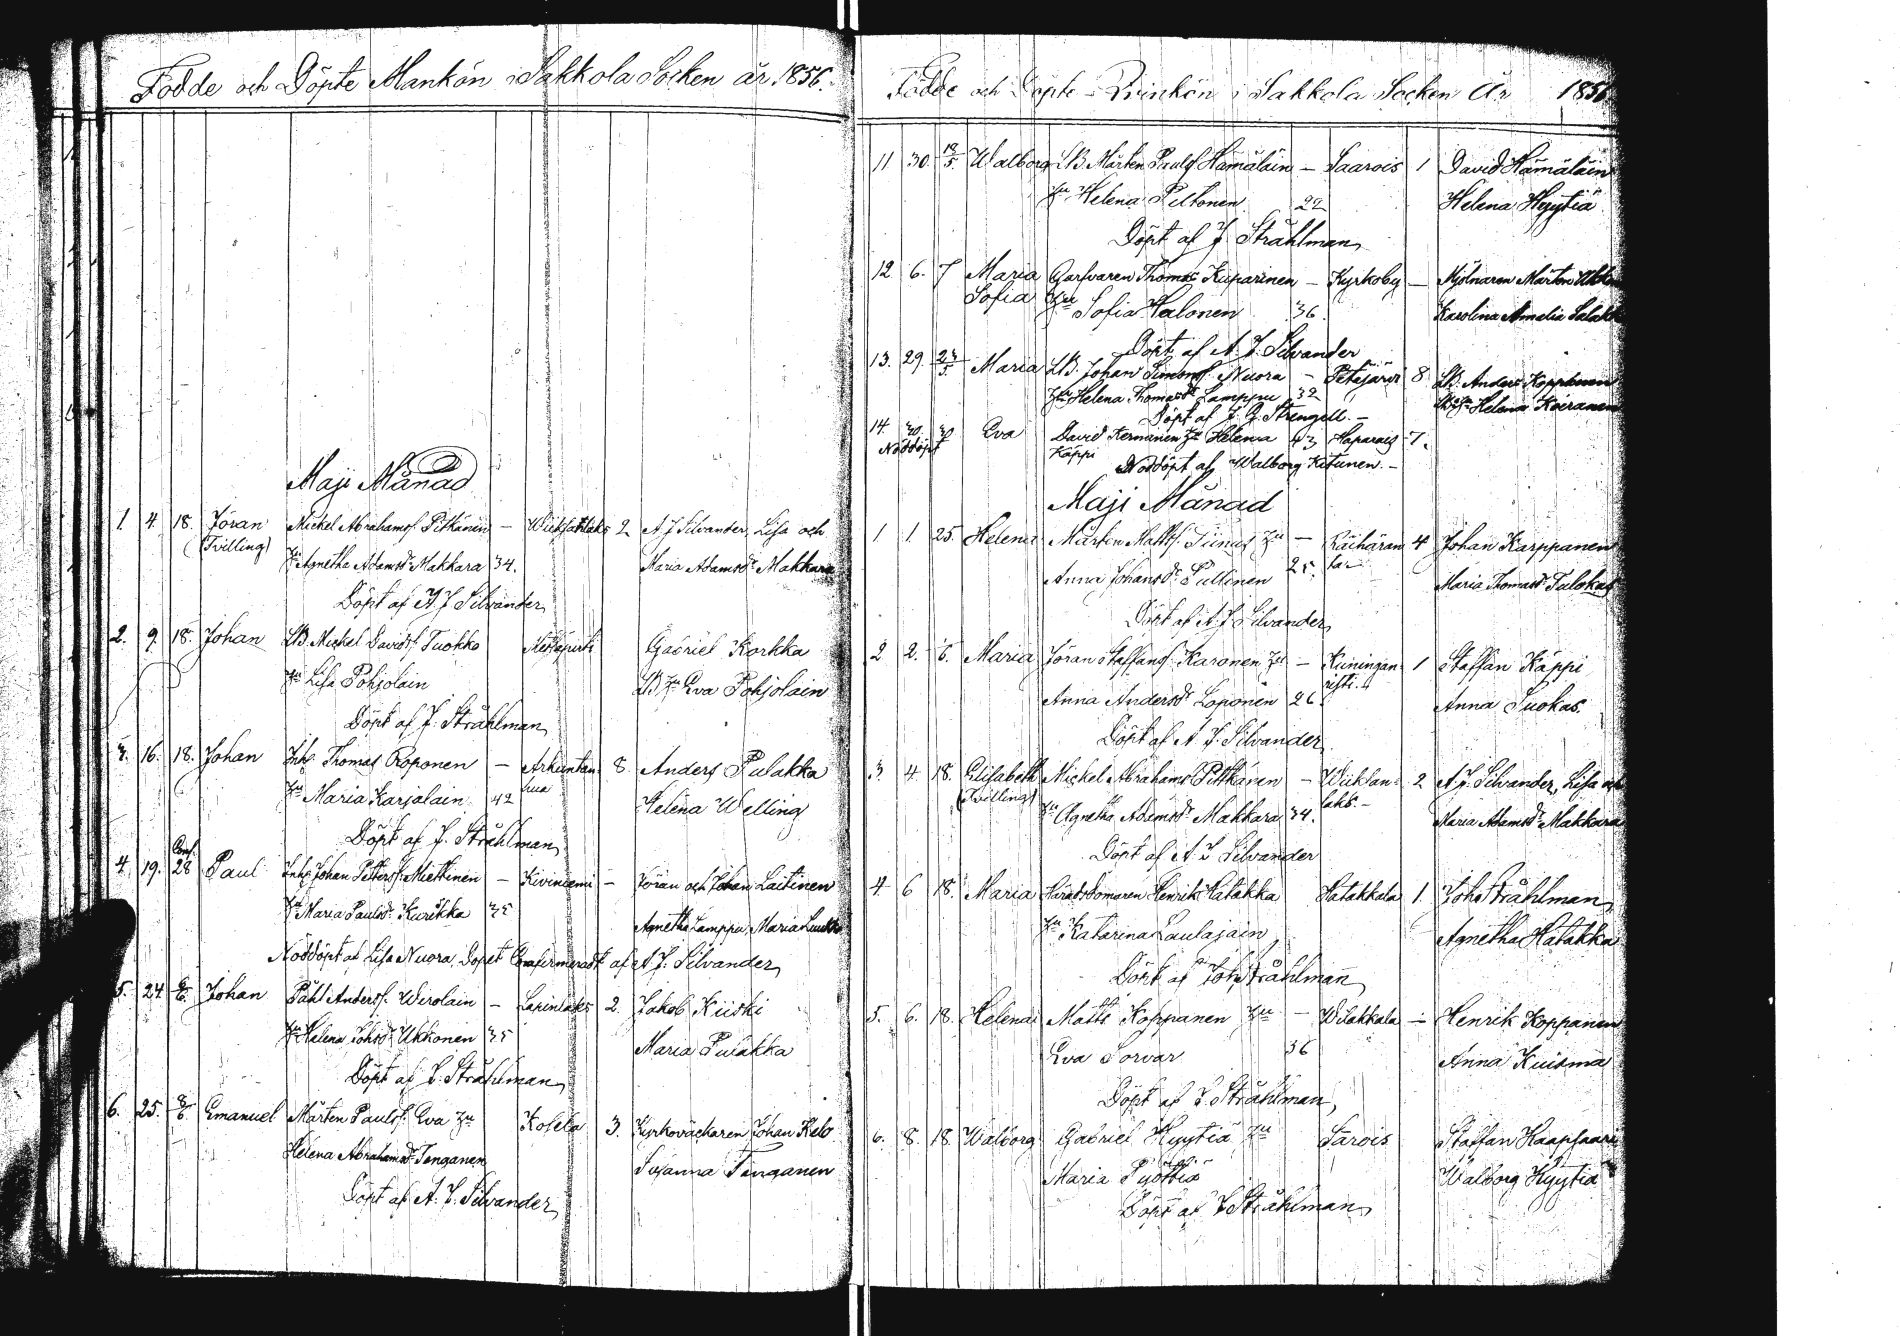 Födde och Döpte Mankön i Sakkola Socken år 1856.
Maji Månad
1. 4. 18. Jöran Mickel Abrahamss. Pitkänen — 2 A J Silvander, Lisa och
(Tvilling) Hu Agnetha Adamsdr Makkara 34. Maria Adamsdr Makkara
Döpt af A J Silvander
2. 9. 18. Johan LB Mickel Davidss. Tuokko Gabriel Korkka
Hu Lisa Pohjolain LB Hu Eva Pohjolain
Döpt af J. Stråhlman
3. 16. 18. Johan Inh. Thomas Roponen — Arkuntan- 8. Anders Pulakka
Hu Maria Karjalain 42 hua Helena Welling
Döpt af J. Stråhlman
Conf.
4. 19. 28 Paul Inh. Johan Petterss. Miettinen — Kiviniemi — Jöran och Johan Laitinen
Hu Maria Paulsdr Kurikka 35 Agnetha Lamppu, Maria
Nöddöpt af Lisa Nuora, Dopet Confirmeradt af A. J. Silvander
5. 24. Johan Påhl Anderss. Wirolain — Lapinlaks 2. Jakob Kiiski
Hu Helena Johsdr Ukkonen 35 Maria Pulakka
Döpt af J. Stråhlman
6. 25. 8/6 Emanuel Mårten Paulss. Eva Hu Kosela 3. Kyrkoväckaren Johan
Helena Abrahamsdr Tenganen Susanna Tenganen
Döpt af A. J. Silvander
Födde och Döpte Qvinkön i Sakkola Socken År 1856
11 30. Walborg LB. Mårten Paulss. Hämäläin — Saarois 1 David Hämäläin
Hu Helena Peltonen 22 Helena Hyytiä
Döpt af J Stråhlman
12 6. 7 Maria Garfvaren Thomas Kuparinen — Kyrkoby — Mjölnaren Mårten
Sofia Hu Sofia Halonen 36. Karolina Amalia
Döpt af A. J. Silvander
13. 29. Maria LB. Johan Simonss. Nuora — Petäjärvi 8 LB. Anders Kopponen
Hu Helena Thomasdr Lamppu 32 Hu Helena Kiiranen
Döpt af J. G. Strengell. —
14. 30. 30 Eva David Hu Helena 43 Haparais 7.
Nöddöpt Käppi Nöddöpt af Walborg Kitunen. —
Maji Månad
1 1. 25. Helena Mårten Matss. Hu — Räihäran- 4 Johan Karppanen
Anna Johansdr Pullinen 25. ta — Maria Thomasdr Tulokas
Döpt af A. J Silvander
2 2. 6. Maria Jöran Staffanss. Karonen Hu — Kuningan- 1 Staffan Käppi
Anna Andersdr Loponen 26. risti. — Anna Suokas
Döpt af A J. Silvander
3. 4. 18. Elisabeth Mickel Abrahamss Pitkänen — Wiiksan- 2 A J Silvander, Lisa och
(Tvilling) Hu Agnetha Adamsdr Makkara 34. lahti. — Maria Adamsdr Makkara
Döpt af A. J Silvander
4 6 18. Maria Häradsdomaren Henrik Hatakka Hatakkala 1. Joh. Stråhlman
Hu Katarina Laulajain Agnetha Hatakka
Döpt af Joh. Stråhlman
5. 6. 18. Helena Matts Kopponen Hu — Wilakkala — Henrik Kopponen
Eva Sorvar 36 Anna Kuisma
Döpt af J. Stråhlman
6. 8. 18. Walborg Gabriel Hyytiä Hu Sarois Staffan Haapsaari
Maria Pyöttiä Walborg Hyytiä
Döpt af J Stråhlman